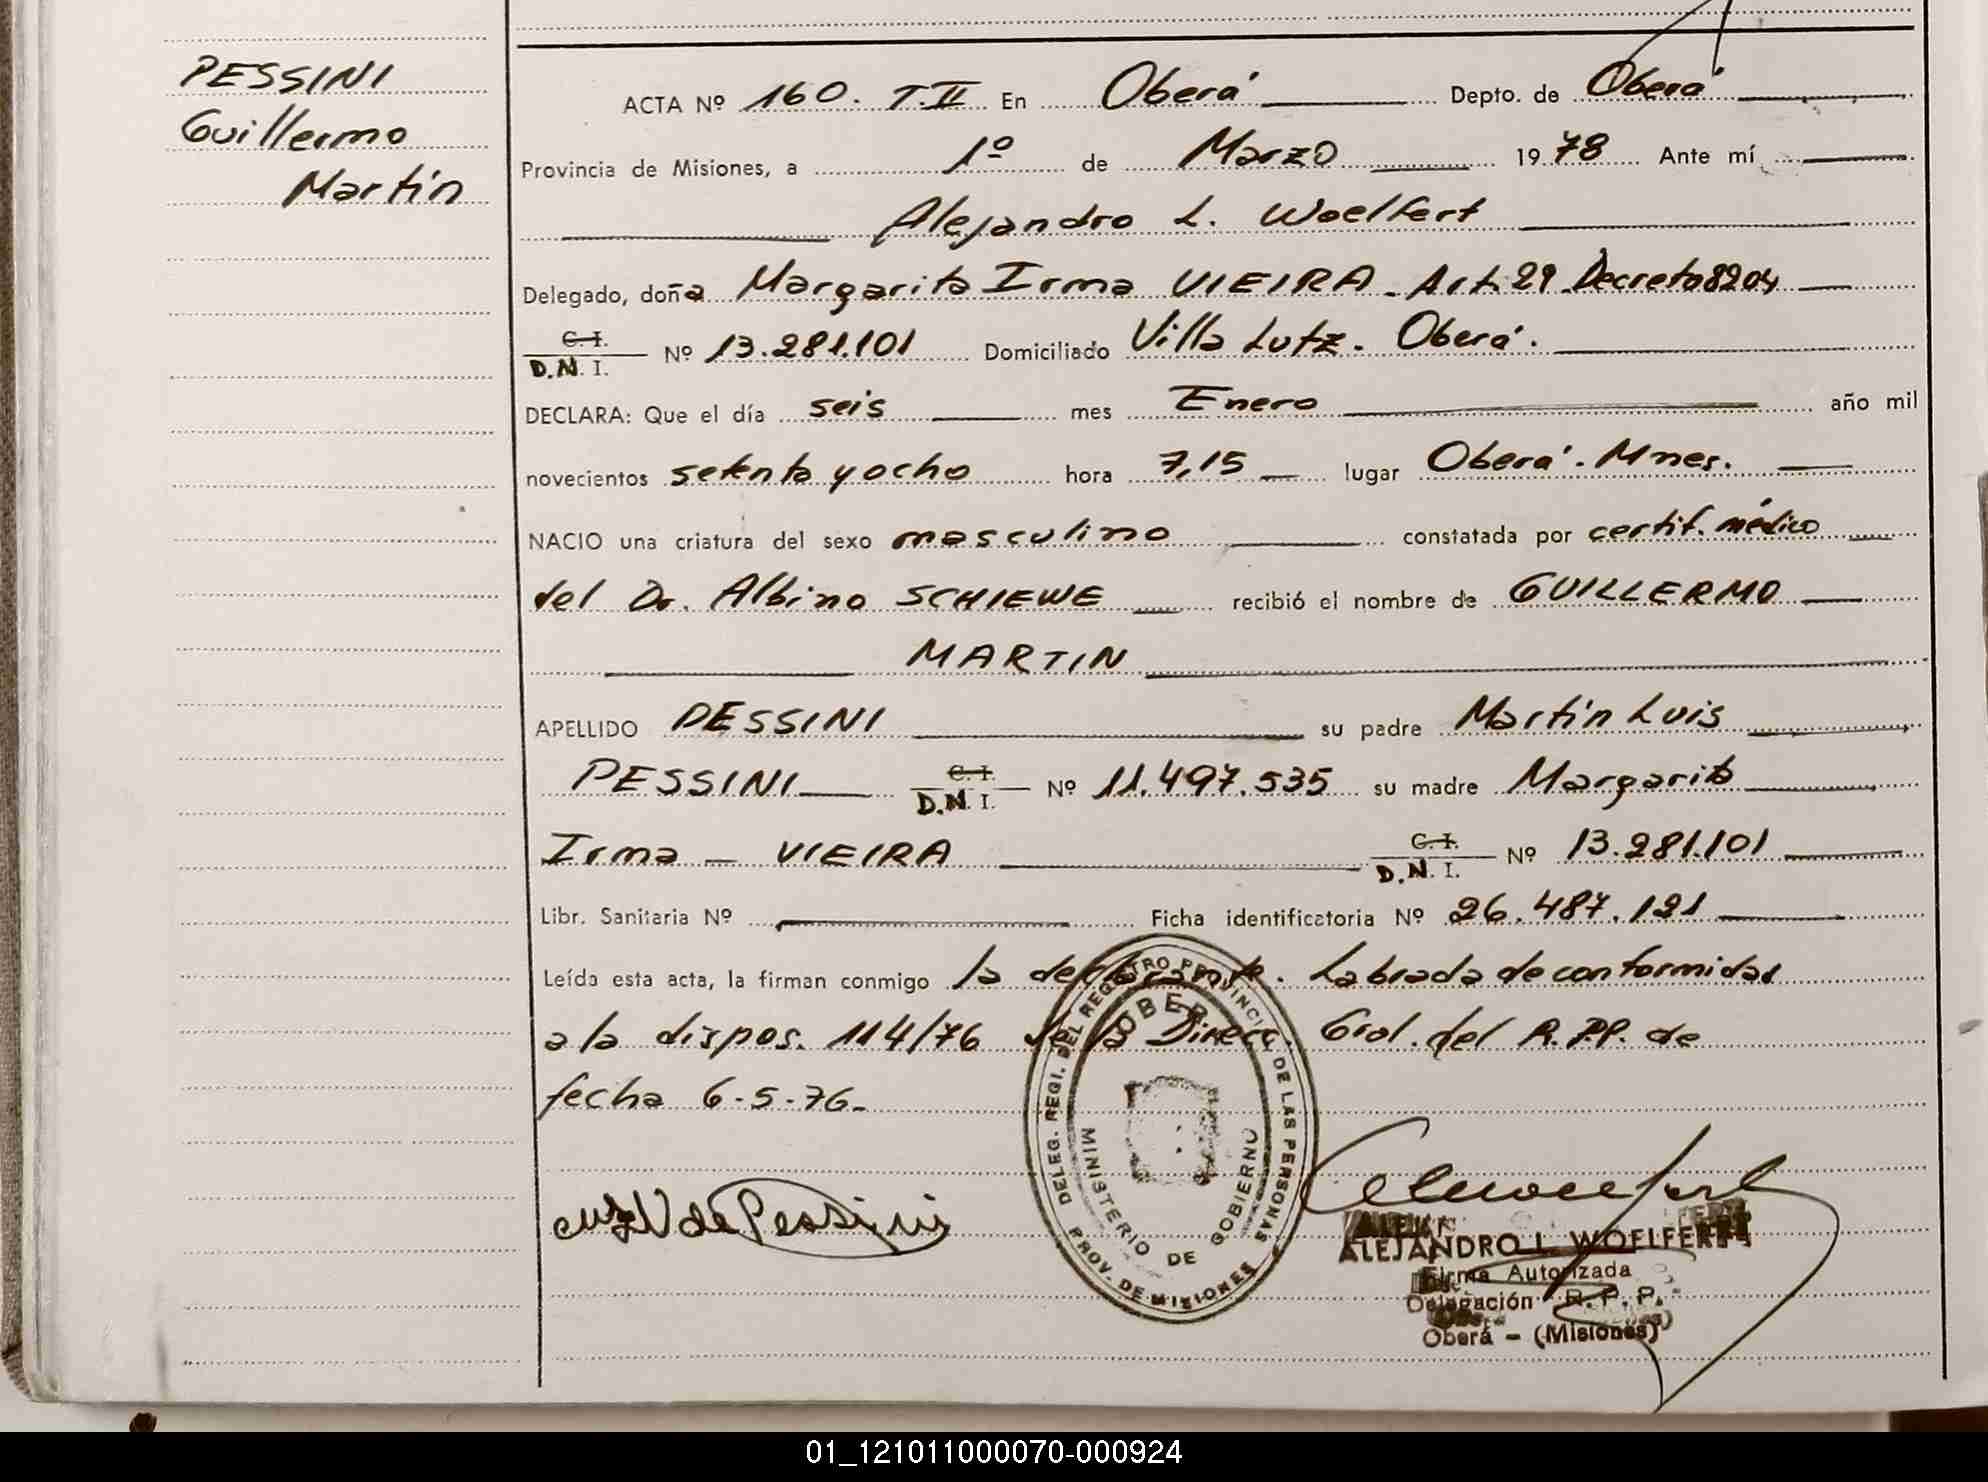 PESSINI
Guillermo
Martín
ACTA Nº 160. T.II En Oberá Depto. de Oberá
Provincia de Misiones, a 1º de Marzo 1978 Ante mí
Alejandro L. Woelfert
Delegado, doña Margarita Irma VIEIRA. Art. 29 Decreto 8204
C.I.
D.N.I. Nº 13.281.101 Domiciliado Villa Lutz. Oberá.
DECLARA: Que el día seis mes Enero año mil
novecientos setenta y ocho hora 7,15 lugar Oberá. Mnes.
NACIO una criatura del sexo masculino constatada por certif. médico
del Dr. Albino SCHIEWE recibió el nombre de GUILLERMO
MARTIN
APELLIDO PESSINI su padre Martín Luis
PESSINI C.I. D.N.I. Nº 11.497.535 su madre Margarita
Irma VIEIRA C.I. D.N.I. Nº 13.281.101
Libr. Sanitaria Nº Ficha identificatoria Nº 26.487.121
Leída esta acta, la firman conmigo la declarante. Labrada de conformidad
a la dispos. 114/76 de la Direcc. Gral. del R.P.P. de
fecha 6-5-76.
DELEG. REGI. DEL REGISTRO PROVINCIAL DE LAS PERSONAS
OBERA
MINISTERIO DE GOBIERNO
PROV. DE MISIONES
de Pessini
ALEJANDRO L. WOELFERT
Firma Autorizada
Delegación R. P. P.
Oberá - (Misiones)
01_121011000070-000924